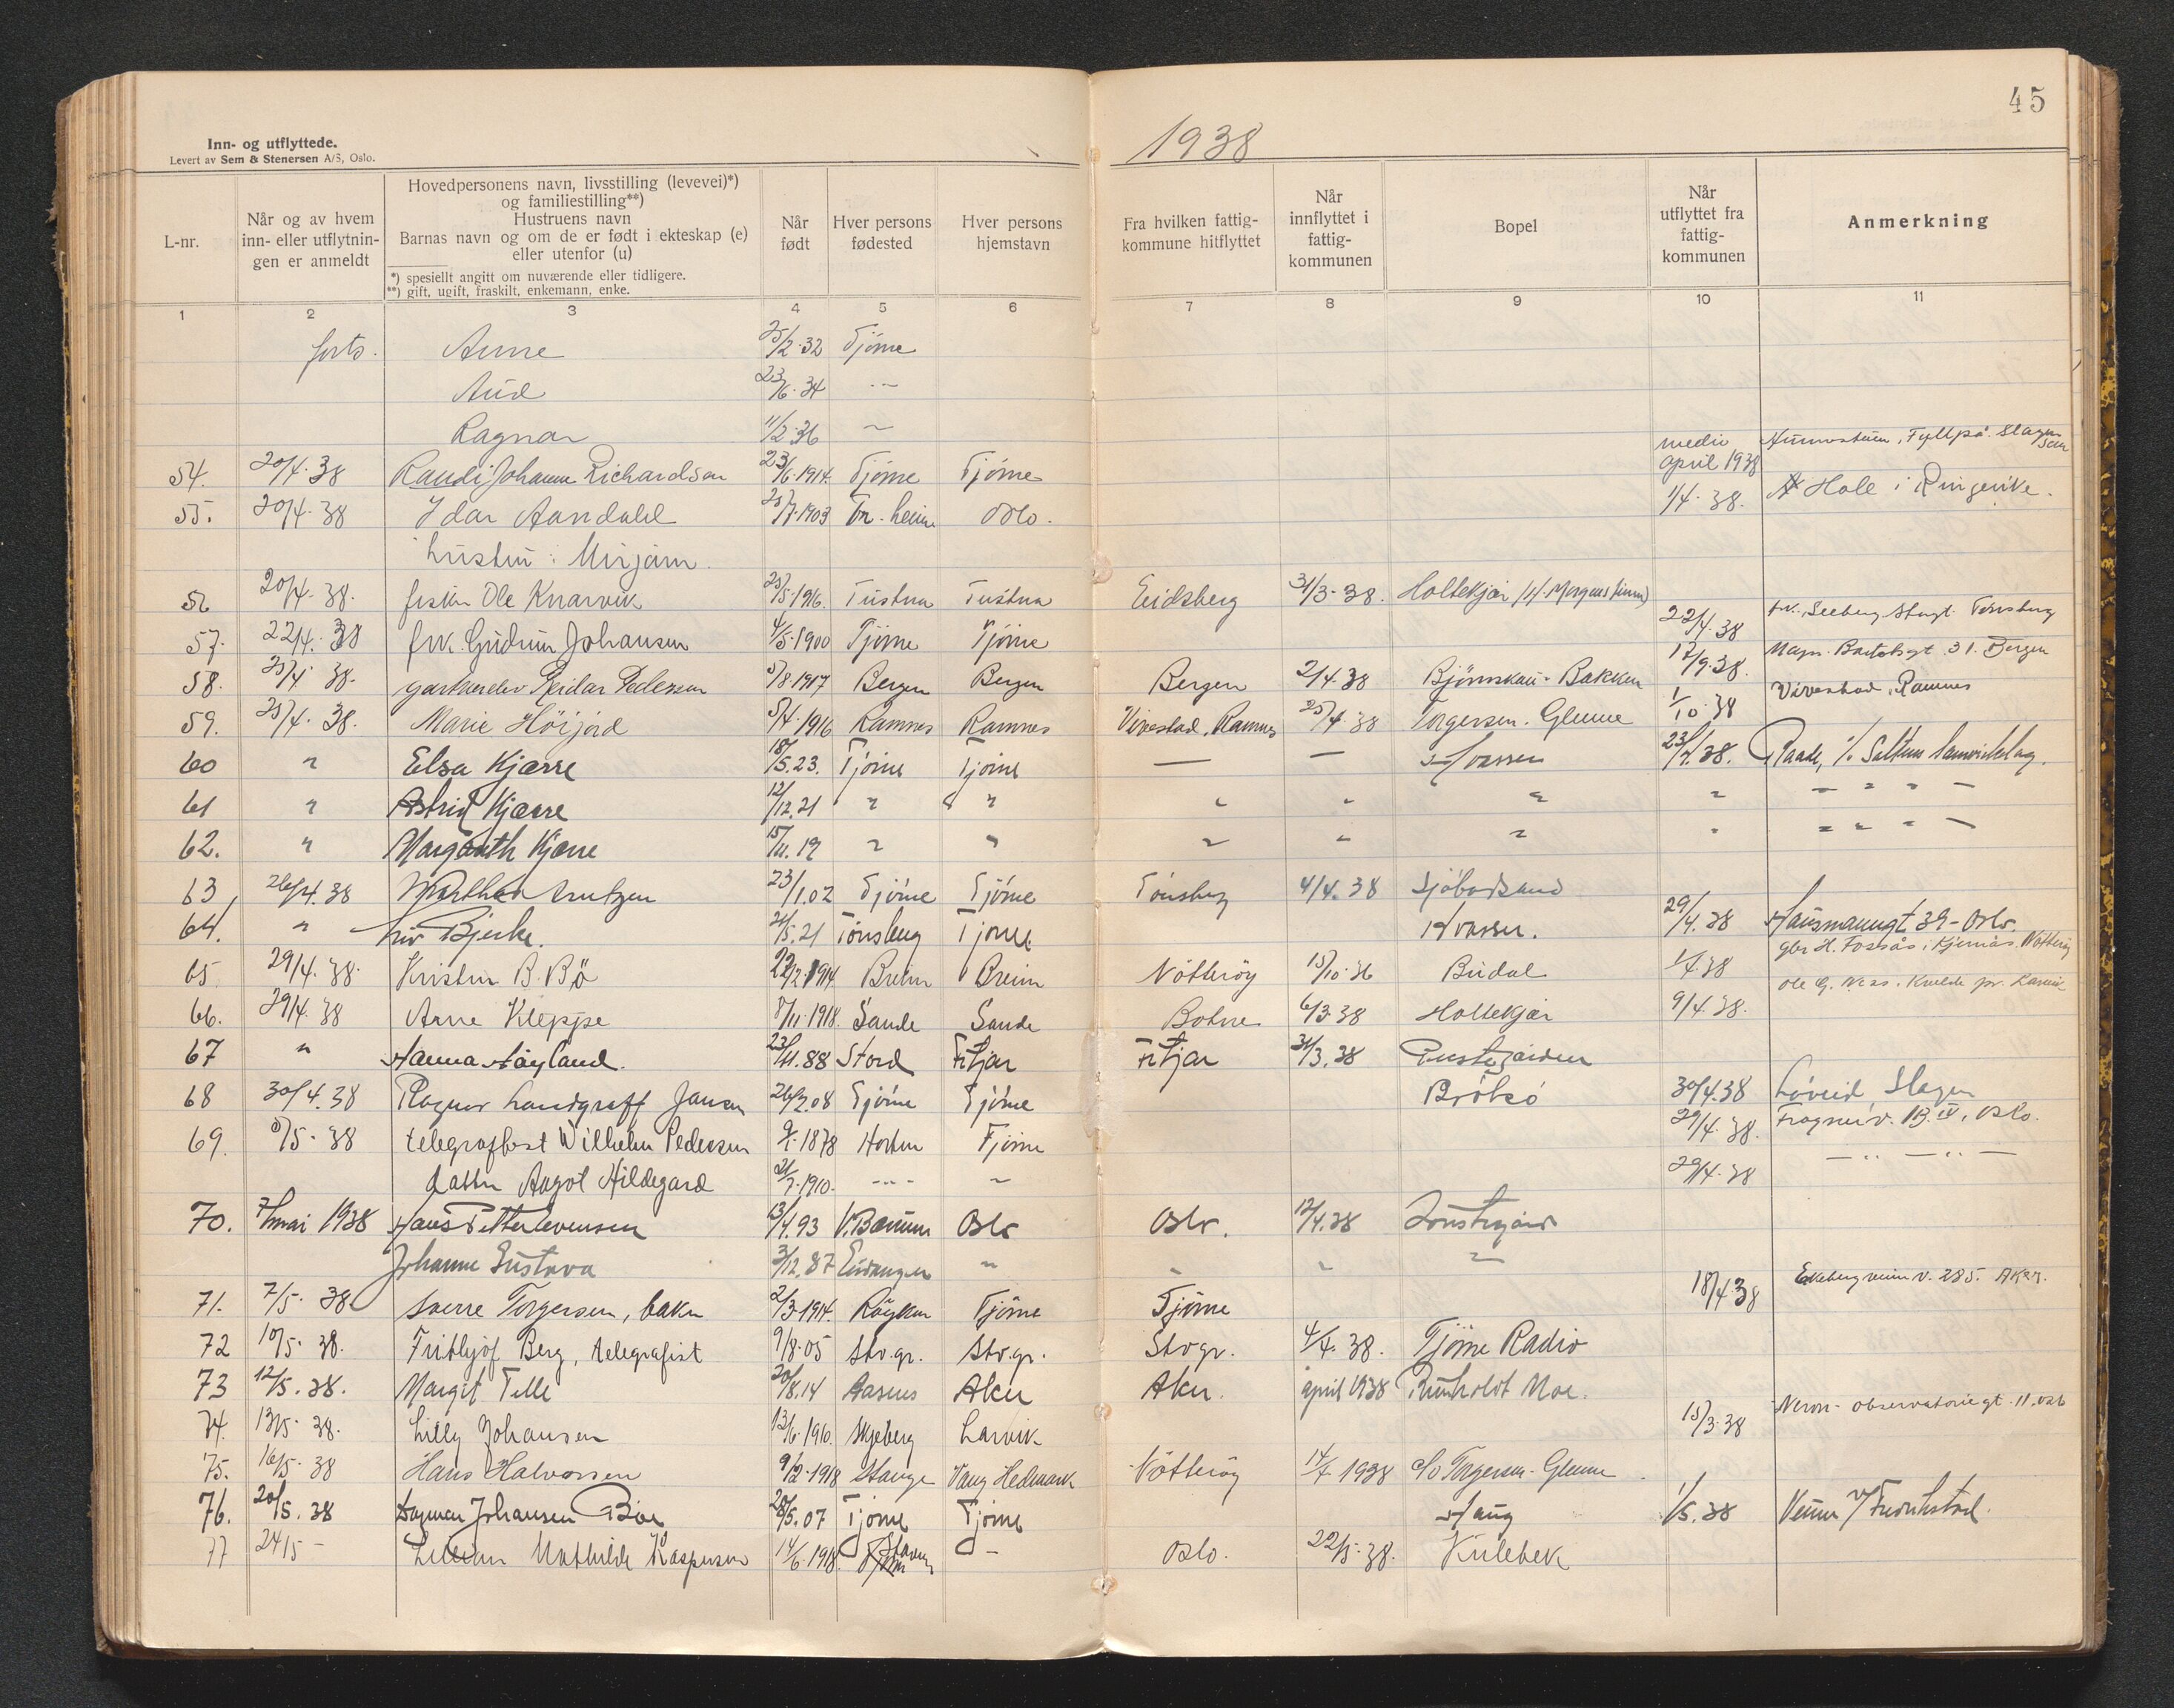 45
Inn- og utflyttede.
Levert av Sem & Stenersen A/S, Oslo.
1938
L-nr.
Når og av hvem
inn- eller utflytnin-
gen er anmeldt
Hovedpersonens navn, livsstilling (levevei)*)
og familiestilling**)
Hustruens navn
Barnas navn og om de er født i ekteskap (e)
eller utenfor (u)
*) spesiellt angitt om nuværende eller tidligere.
**) gift, ugift, fraskilt, enkemann, enke.
Når
født
Hver persons
fødested
Hver persons
hjemstavn
Fra hvilken fattig-
kommune hitflyttet
Når
innflyttet i
fattig-
kommunen
Bopel
Når
utflyttet fra
fattig-
kommunen
Anmerkning
1 2 3 4 5 6 7 8 9 10 11
forts. Anne 25/2-32 Tjöme
Aud 23/6-34 -"-
Ragnar 11/2-36 "
54. 20/4-38 Randi Johanne Richardsen 23/6-1914 Tjöme Tjöme medio april 1938 Slagen Sem
55. 20/4-38 Idar Aandahl 25/7-1903 Tr.heim Oslo. 1/4-38. Hole i Ringerike.
hustru: Mirjam
56 20/4-38. fisker Ole Knarvik 25/5-1916. Tustna Tustna Eidsberg 31/3-38. Holtekjær
57. 22/4-38 frk. Gudrun Johansen 4/5-1900 Tjöme Tjöme 22/4-38 frk. Seeberg Tönsberg
58. 25/4 38. gartnerelev Reidar Pedersen 5/8-1917 Bergen Bergen Bergen 2/4-38 Björnskau-Bakken 12/9-38. 31. Bergen
59. 25/4-38. Marie Höijord 5/4-1916 Ramnes Ramnes Vivestad, Ramnes 25/4-38 Torgersen. Glenne 1/10-38 Vivestad, Ramnes
60 " Elsa Kjærre 18/5.23. Tjöme Tjöme — — Hvasser 23/4.38. Raade,
61 " Astrid Kjærre 12/12.21 " " " " " " — " " —
62. " Margareth Kjærre 15/11.19 " " " " " " — " " —
63, 26/4.38 Marthea Arntzen 23/1.02 Tjöme Tjöme Tönsberg 4/4.38
64. " Liv Bjerke. 21/5.21 Tönsberg Tjöme Hvasser. 29/4.38 Hausmannsgt 39-Oslo.
65. 29/4-38. Kristen B. Bö 22/2 1914 Breim Breim Nötteröy 15/10-36 Budal 1/4-38
66. 29/4-38 Arne Kleppe 8/11-1918. Sande Sande Botne 6/3-38 Holtekjær 9/4-38.
67 " Hanna Höyland. 23/11.88 Stord Fitjar Fitjar 31/3.38 Prestegården
68 30/4.38 Ragnar Landgraff Jansen 26/2.08 Tjöme Tjöme Brötsö 30/4.38 Löveid, Slagen
69. 5/5-38 telegrafbest Wilhelm Pedersen 9/1-1878 Horten Tjöme 29/4-38. Frognerv. 13. IV, Oslo.
datter Aagot Hildegard 21/7-1910. -"- " 29/4-38 — " — " —
70. 7/mai 1938 Hans Petter Evensen 13/4.93 V.Bærum Oslo Oslo. 12/4.38
Johanne Gustava 3/12.87 Eidanger " " " "
71. 7/5-38 Sverre Torgersen, baker 2/3-1914. Röyken Tjöme Tjöme 18/4 38 Ekebergveien v. 285. Aker.
72 10/5-38. Frithjof Berg, telegrafist 9/8-05 Stv.gr. Stv.gr. Stvgr. 4/4.38. Tjöme Radio
73 12/5.38. Margit Telle 20/8.14 Aasnes Aker Aker. april 1938 Rumholdt Moe.
74. 13/5-38. Lilly Johansen 13/6-1910. Skjeberg Larvik 15/3-38 Observatoriegt. 11. Oslo
75. 16/5-38 Hans Halvorsen 9/2-1918 Stange Vang Hedmark Nötteröy 14/4 1938 c/o Torgersen-Glenne
76. 20/5.38 Dagmar Johansen Bie 28/5.07 Tjöme Tjöme Haug 1/5.38 Veum v/ Fredrikstad.
77 24/5 - Lillian Mathilde Kaspersen 14/6-1918. Stavern - Oslo. 22/5-38. Kulebek